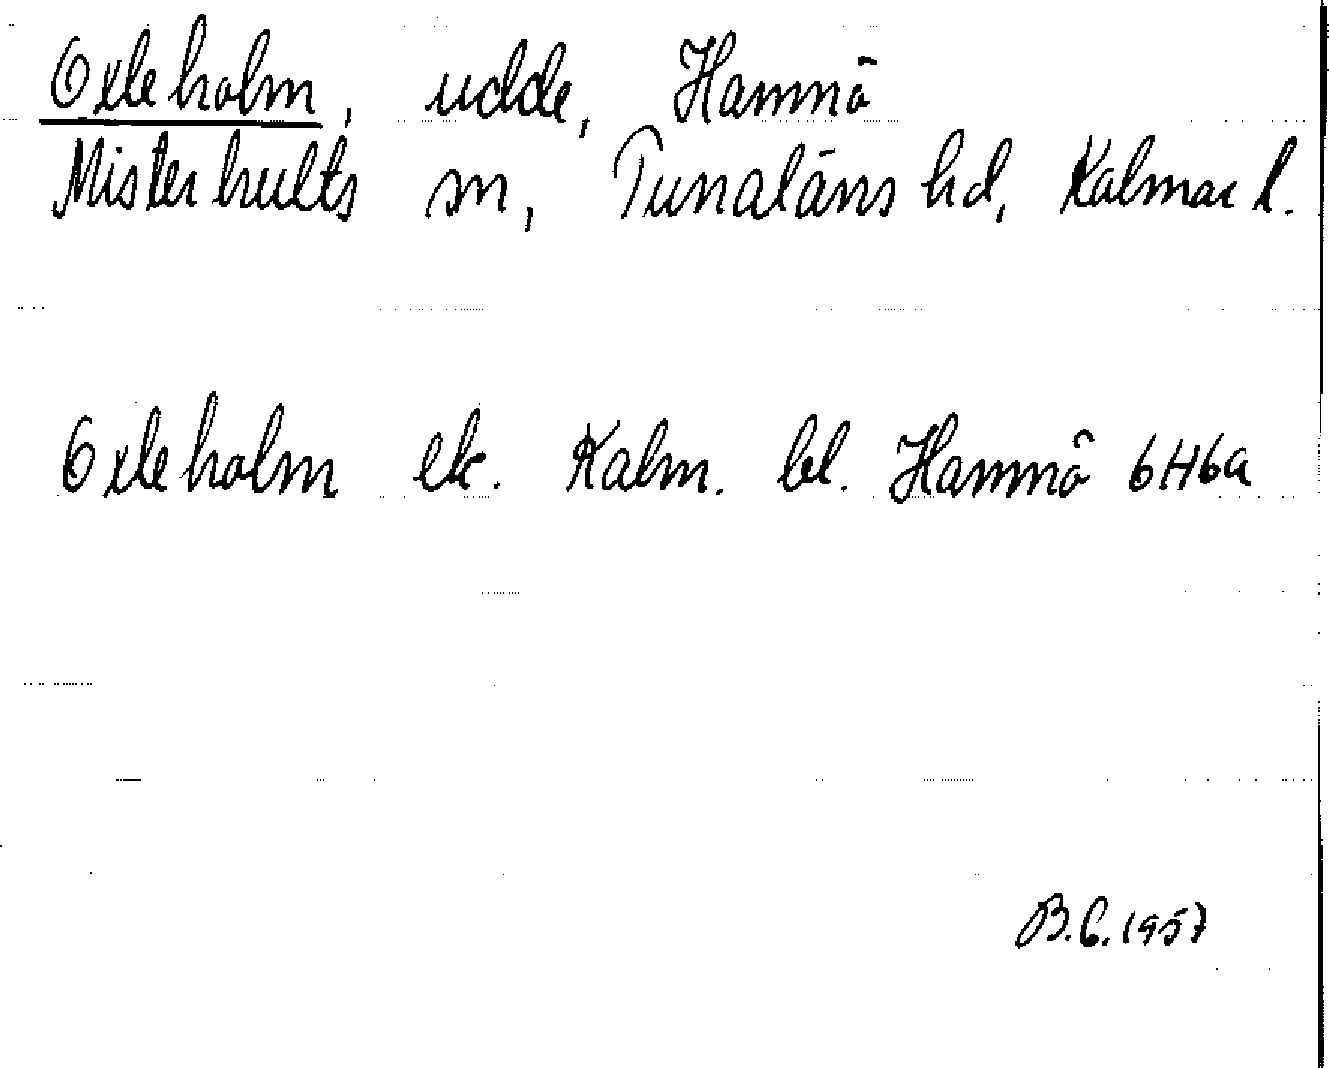 Oxleholm, udde, Hamnö
Misterhults sn, Tunaläns hd, Kalmar l.
Oxleholm ek. Kalm. bl. Hamnö 6H6a
B.C. 1957